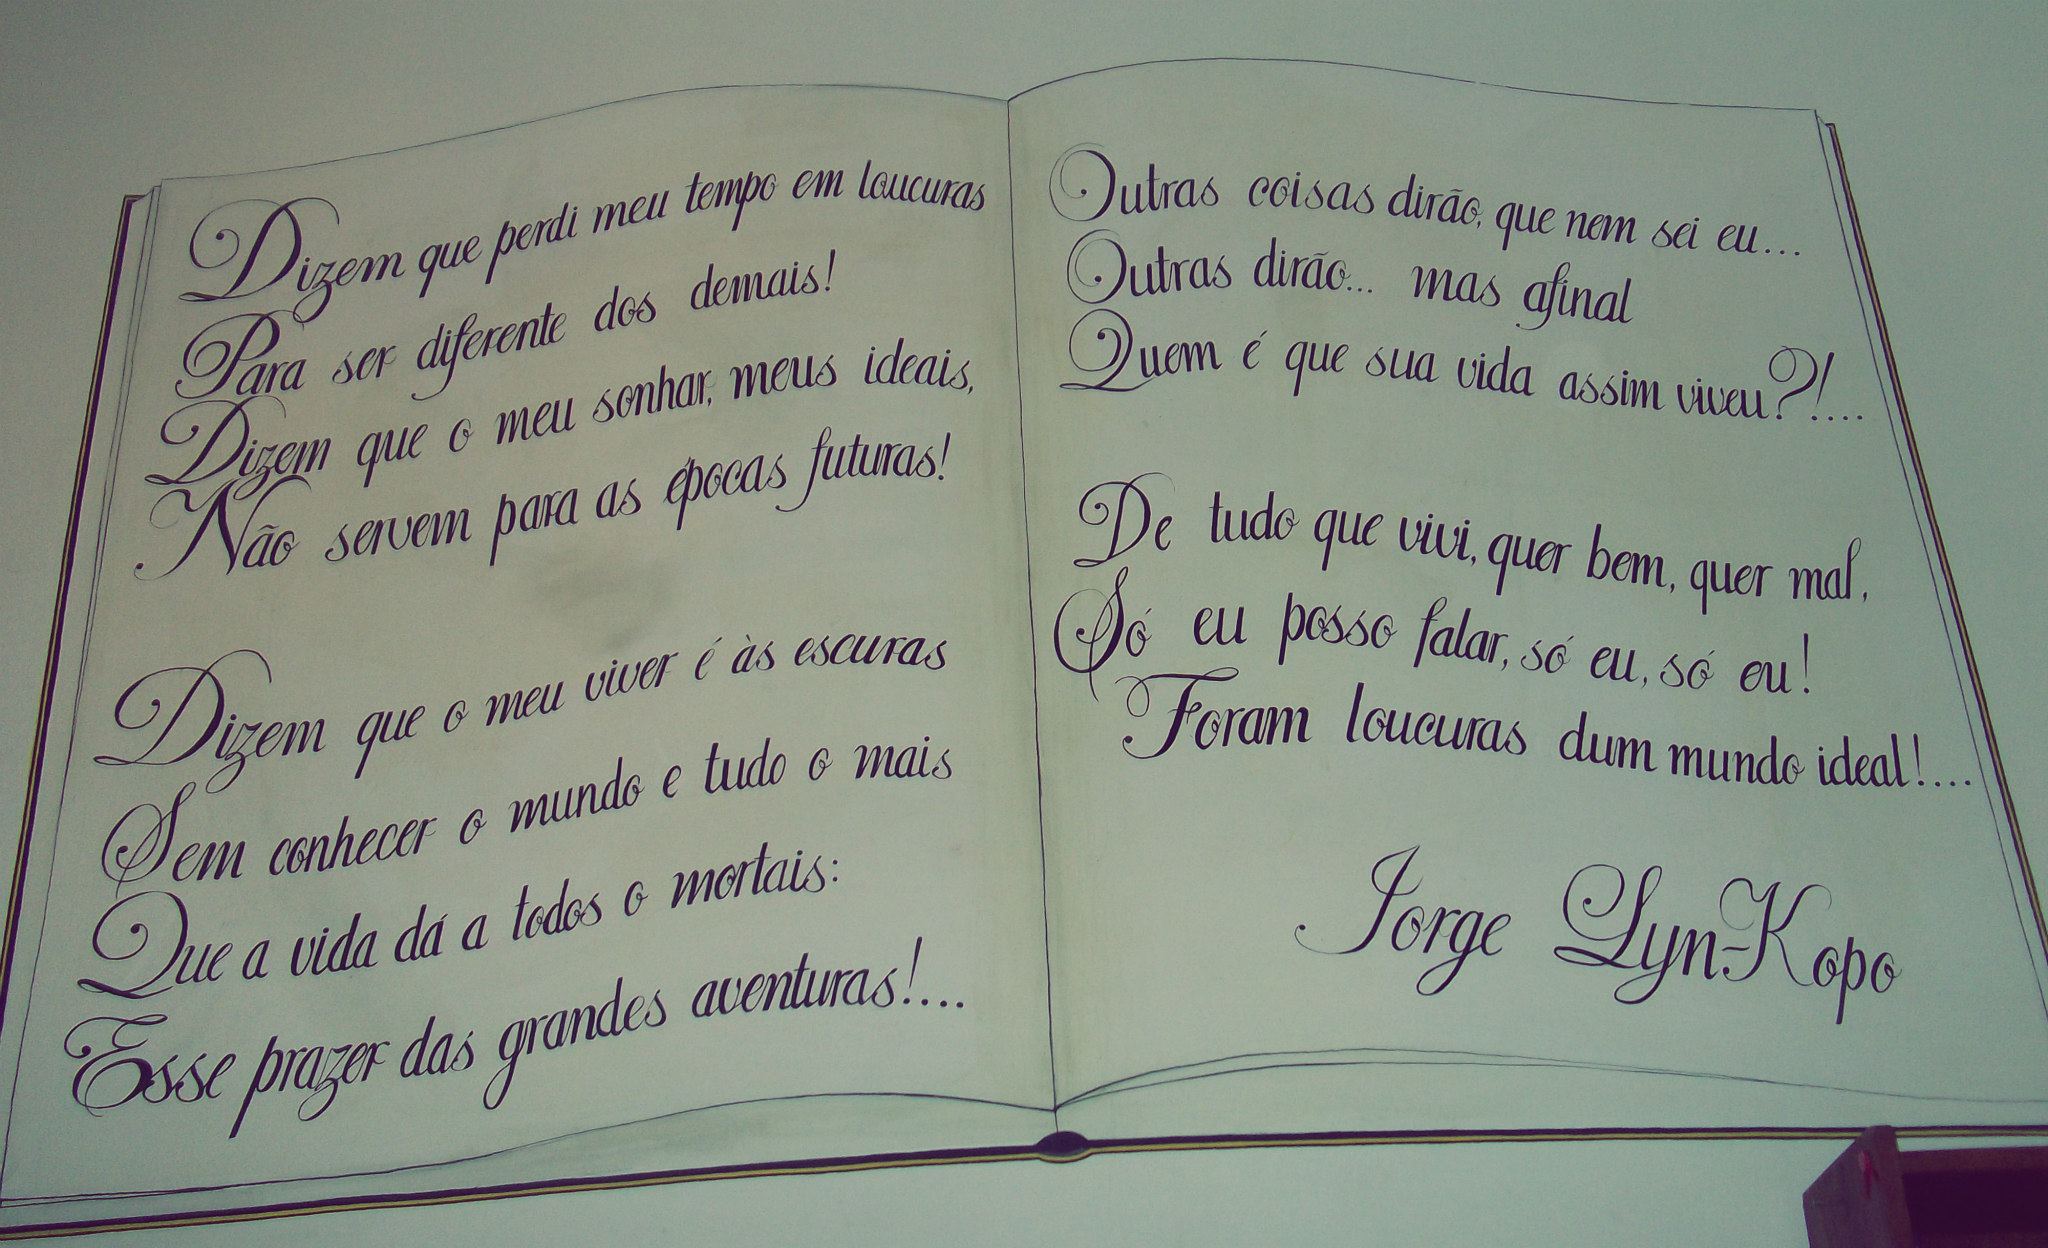 Dizem que perdi meu tempo em loucuras
Para ser diferente dos demais!
Dizem que o meu sonhar, meus ideais,
Não servem para as épocas futuras!
Dizem que o meu viver é às escuras
Sem conhecer o mundo e tudo o mais
Que a vida dá a todos o mortais:
Esse prazer das grandes aventuras!...
Outras coisas dirão, que nem sei eu...
Outras dirão... mas afinal
Quem é que sua vida assim viveu?!...
De tudo que vivi, quer bem, quer mal,
Só eu posso falar, só eu, só eu!
Foram loucuras dum mundo ideal!...
Jorge Lyn-Kopo